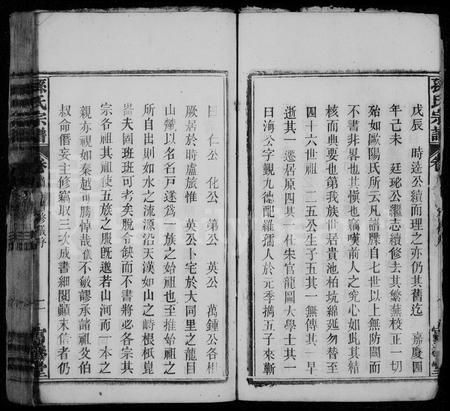 戊辰　時達公續而理之亦仍其舊迄　嘉慶四
年己未　廷珌公繼志續修去其繁蕪校正一切
殆如歐陽氏所云凡譜牒自七世以上無防闕而
不書非畧也其慎也竊嘆前人之究心如此其結
核而典要也第我族世居貴池柏坑綿延勿替至
四十六世祖　二五公生子五其一無傳其一早
逝其一遷居原四其一仕宋官龍圖大學士其一
曰海公字觀九德配羅孺人於元季攜五子來蘄
曰　仁公　化公　第公　英公　萬鍾公各相
厥居於時廬旅惟　英公卜宅於大同里之龍目
山麓以名名戶遂為一族之始祖也至推始祖之
所自出則如水之流源沿天漢如山之峙根柢崑
崙夫固班班可考矣脫令缺而不書將必各宗其
宗各祖其祖使五族之服未盡若山河而一本之
親亦視如秦越可勝悼哉惟不敏謬承諸祖父伯
叔命僭妄主修竊取三次成書細閱顛末信者仍
孫氏宗譜
孫氏宗譜卷